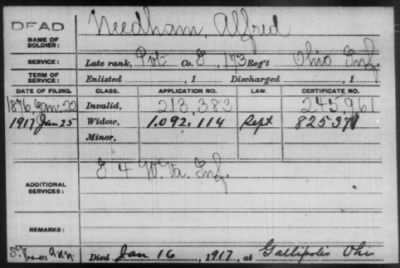 DEAD
NAME OF SOLDIER: Needham, Alfred
SERVICE: Late rank, Pvt Co. E, 173 Reg't Ohio Inf.
TERM OF SERVICE: Enlisted , 1 Discharged , 1
DATE OF FILING. CLASS. APPLICATION NO. LAW. CERTIFICATE NO.
1876, Jan. 22 Invalid, 213,383 245,961
1917 Jan 25 Widow, 1.092.114 Sept 825371
Minor,
ADDITIONAL SERVICES: E 4 W. Va. Inf.
REMARKS:
Died Jan 16, 1917, at Gallipolis Ohi